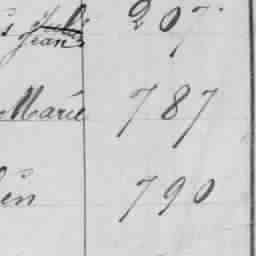 Jean 207
Marie 787
en 790